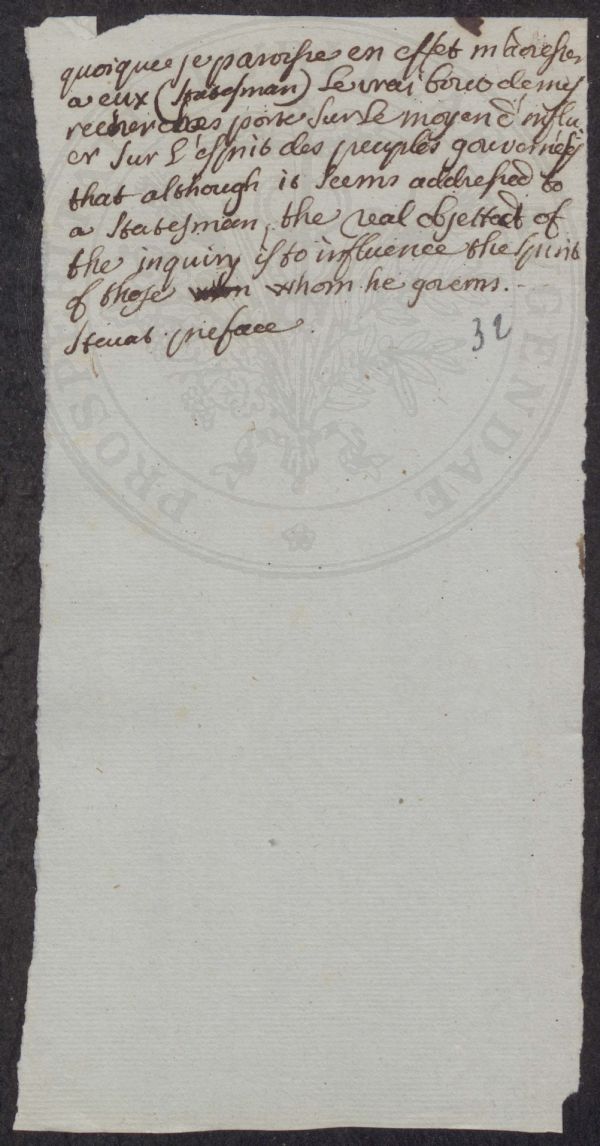 quoique je paroisse en effet m'adresser
a eux (statesman) Le vrai bout de mes
recherches porte sur Le moyen d'influ
er sur L'esprit des peuples gouvernés
that although it seems addressed to
a statesman, the real objectt of
the inquiry is to influence the spirit
of those whom he governs.
Steuat preface
32
PROSE
GENDAE